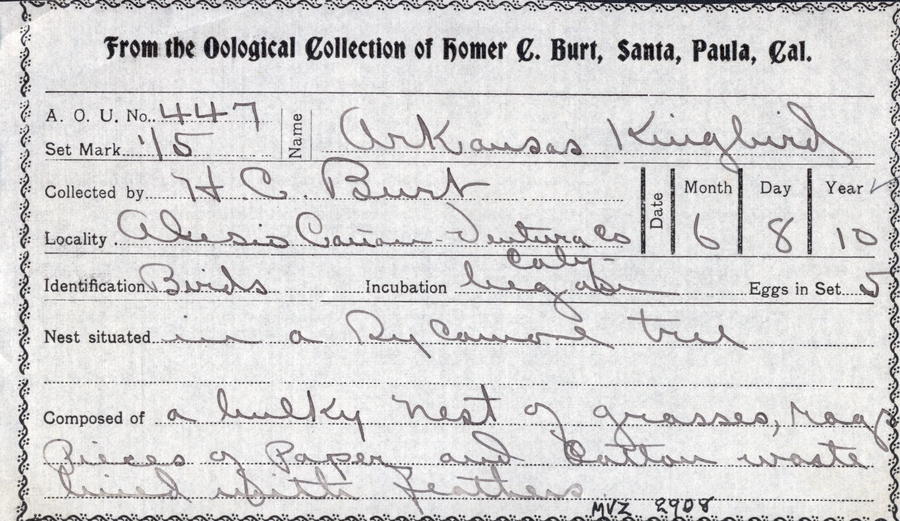 From the Oological Collection of Homer C. Burt, Santa, Paula, Cal.
A. O. U. No. 447 Name Arkansas Kingbird
Set Mark 1/5
Collected by H. C. Burt Date Month Day Year ✓
Locality Aliesio Canon - Ventura Co 6 8 10
Caly-
Identification Birds Incubation began Eggs in Set 5
Nest situated in a Sycamore tree
Composed of a bulky nest of grasses, rags
Pieces of Paper and Cotton waste
lined with feathers
MVZ 2908